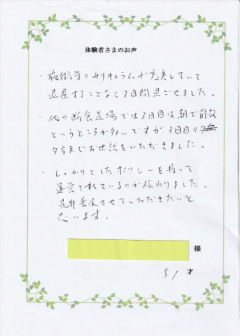 体験者さまのお声
・施術等のカリキュラムが充実していて
退屈することなく3日間過ごせました。
・他の断食道場では3日目は朝で解散
というところが多いですが3日目の夕
方までお世話をいただきました。
・しっかりとしたポリシーを持って
運営されているのが伝わりました。
是非また来させていただきたいと
思います。
様
51才